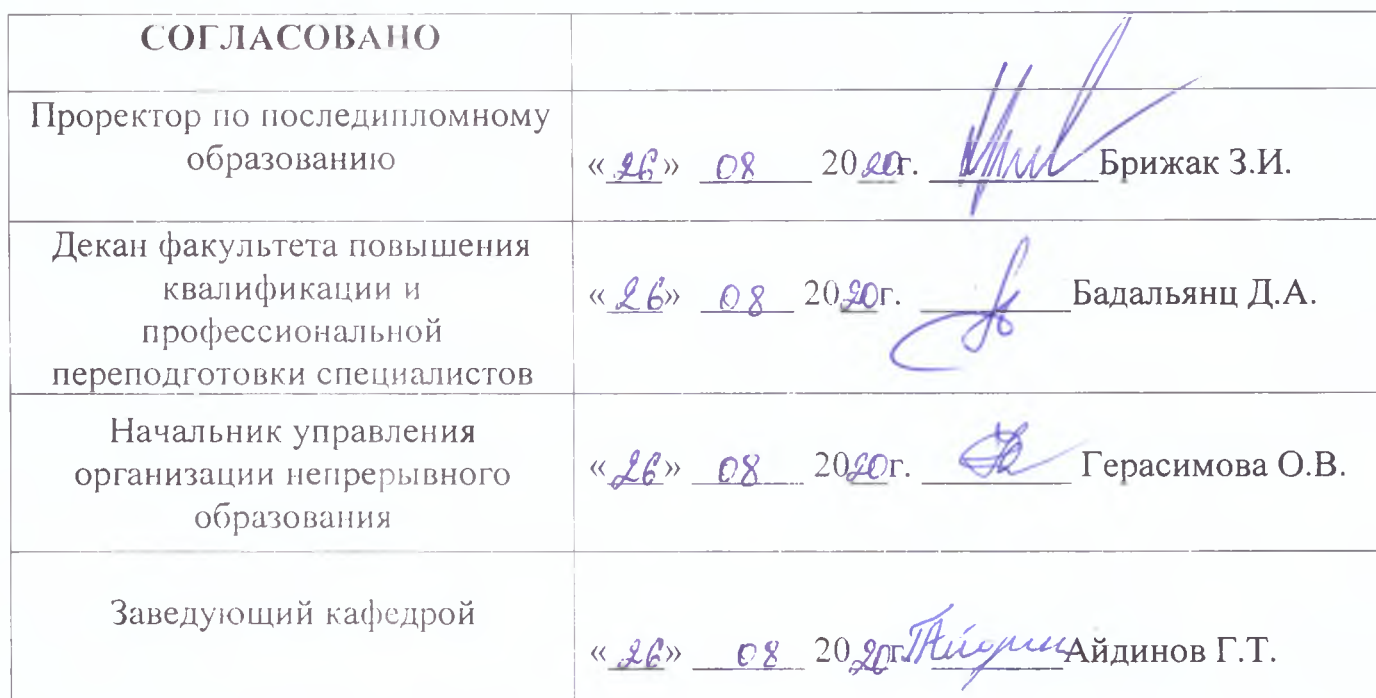 СОГЛАСОВАНО
Проректор по последипломному
образованию
«26» 08 2020г. Брижак З.И.
Декан факультета повышения
квалификации и
профессиональной
переподготовки специалистов
«26» 08 2020г. Бадальянц Д.А.
Начальник управления
организации непрерывного
образования
«26» 08 2020г. Герасимова О.В.
Заведующий кафедрой
«26» 08 2020г. Айдинов Г.Т.